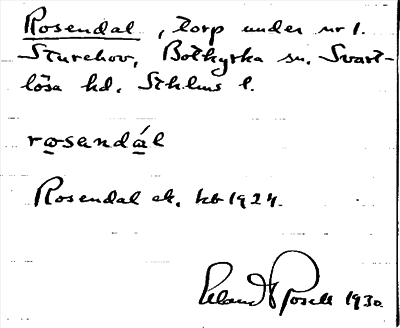 Rosendal, torp under nr 1.
Sturehov, Botkyrka sn. Svart-
lösa hd. Sthlms l.
rosandál
Rosendal ek. kb 1924.
Erland Rosell 1930